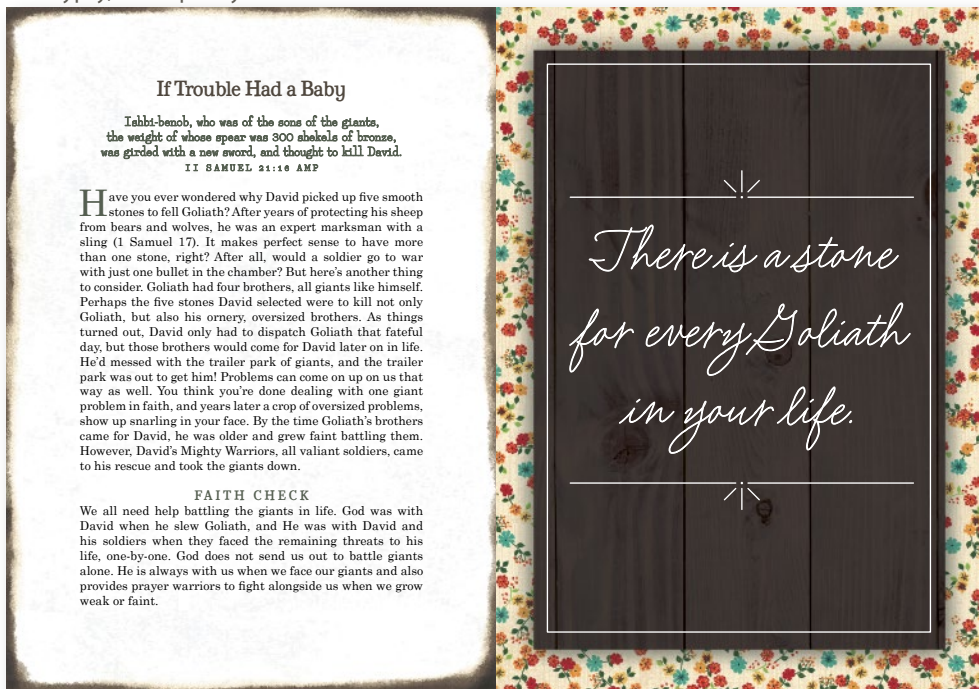 If Trouble Had a Baby
Ishbi-benob, who was of the sons of the giants,
the weight of whose spear was 300 shekels of bronze,
was girded with a new sword, and thought to kill David.
II SAMUEL 21:16 AMP
Have you ever wondered why David picked up five smooth
stones to fell Goliath? After years of protecting his sheep
from bears and wolves, he was an expert marksman with a
sling (1 Samuel 17). It makes perfect sense to have more
than one stone, right? After all, would a soldier go to war
with just one bullet in the chamber? But here's another thing
to consider. Goliath had four brothers, all giants like himself.
Perhaps the five stones David selected were to kill not only
Goliath, but also his ornery, oversized brothers. As things
turned out, David only had to dispatch Goliath that fateful
day, but those brothers would come for David later on in life.
He'd messed with the trailer park of giants, and the trailer
park was out to get him! Problems can come on up on us that
way as well. You think you're done dealing with one giant
problem in faith, and years later a crop of oversized problems,
show up snarling in your face. By the time Goliath's brothers
came for David, he was older and grew faint battling them.
However, David's Mighty Warriors, all valiant soldiers, came
to his rescue and took the giants down.
FAITH CHECK
We all need help battling the giants in life. God was with
David when he slew Goliath, and He was with David and
his soldiers when they faced the remaining threats to his
life, one-by-one. God does not send us out to battle giants
alone. He is always with us when we face our giants and also
provides prayer warriors to fight alongside us when we grow
weak or faint.
There is a stone
for every Goliath
in your life.